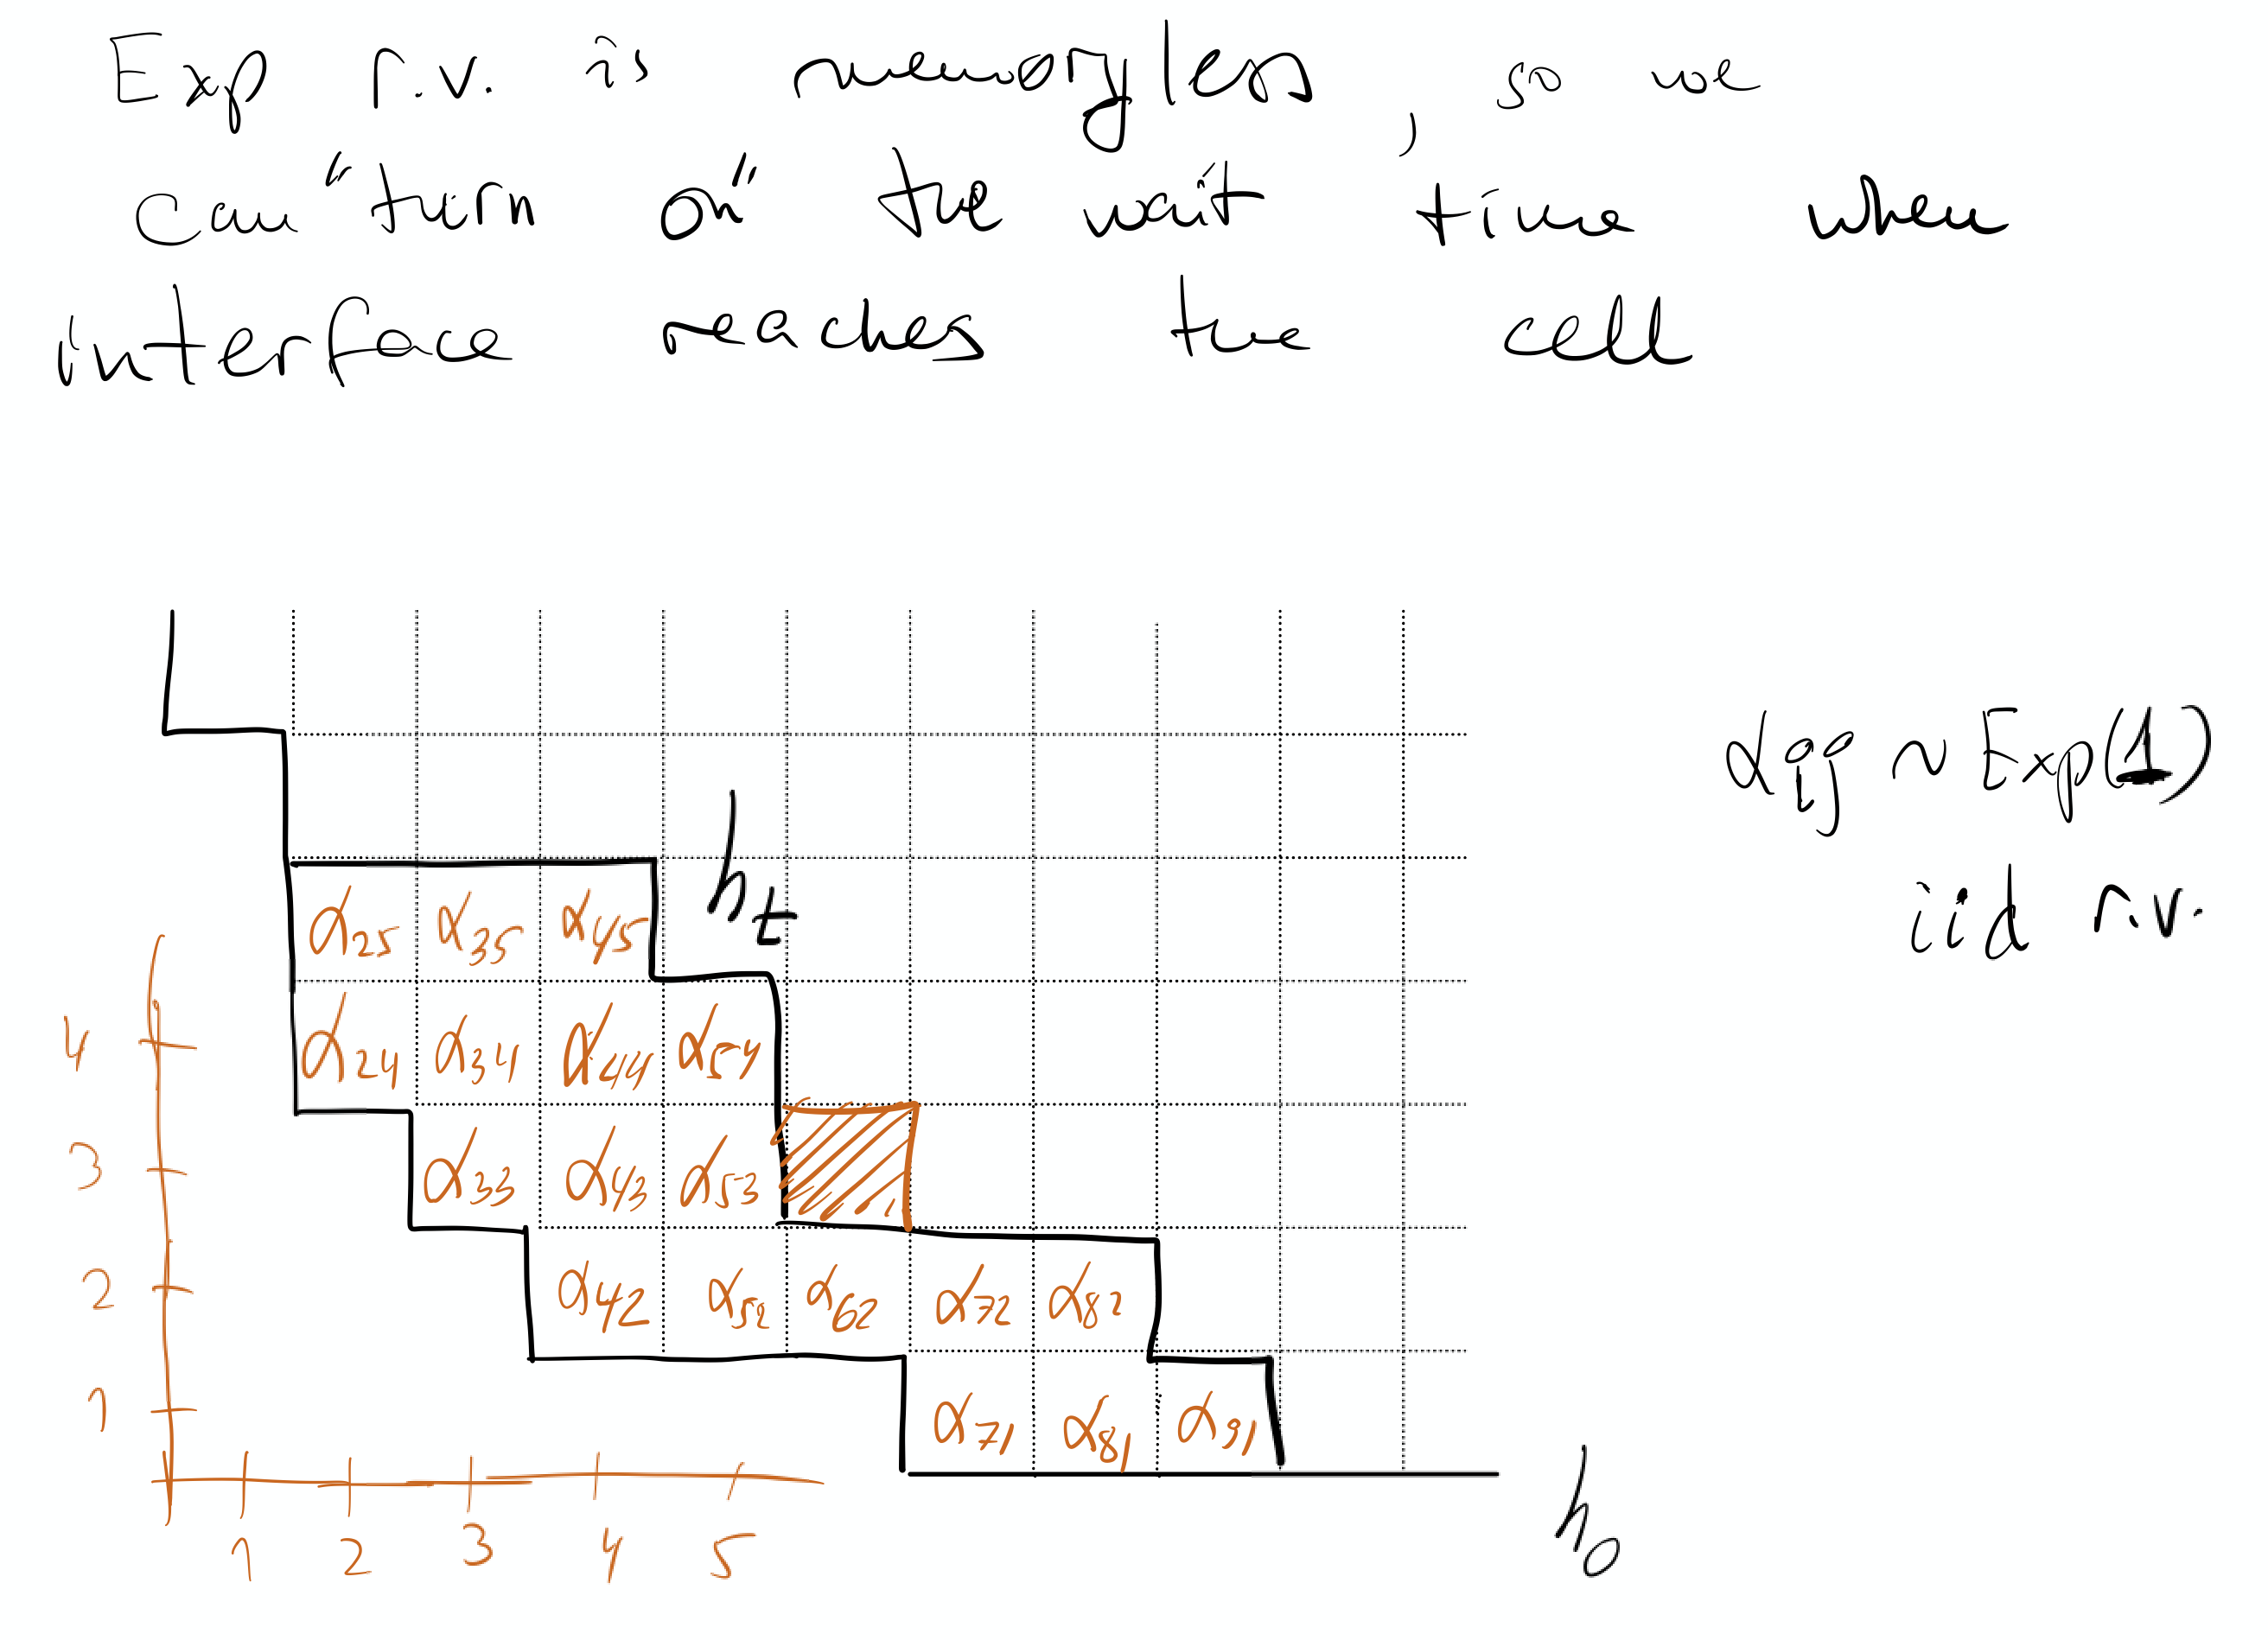 Exp r.v. is memoryless, so we
can "turn on" the wait time when
interface reaches the cell
αij ~ Exp(1)
iid r.v.
ht
α25 α35 α45
4 α24 α34 α44 α54
3 α33 α43 α53
2 α42 α52 α62 α72 α82
1 α71 α81 α91
h0
1 2 3 4 5